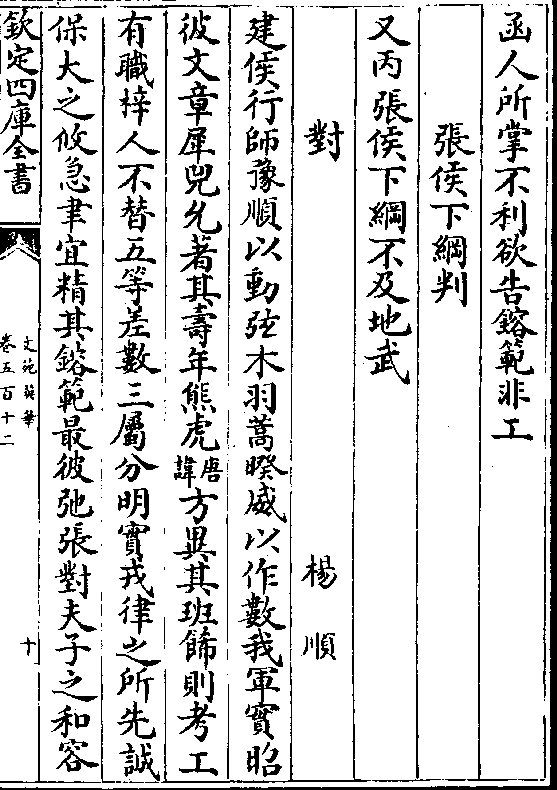 函人所掌不利欲告鎔範非工
張侯下綱判
又丙張侯下綱不及地武
對 楊順
建侯行師豫順以動弦木羽蒿暌威以作數我軍實昭
彼文章犀兕允著其壽年熊虎唐諱方異其班餙則考工
有職梓人不替五等差數三屬分明實戎律之所先誠
保大之攸急聿宜精其鎔範最彼弛張對夫子之和容
欽定四庫全書
文苑英華
卷五百十二
十